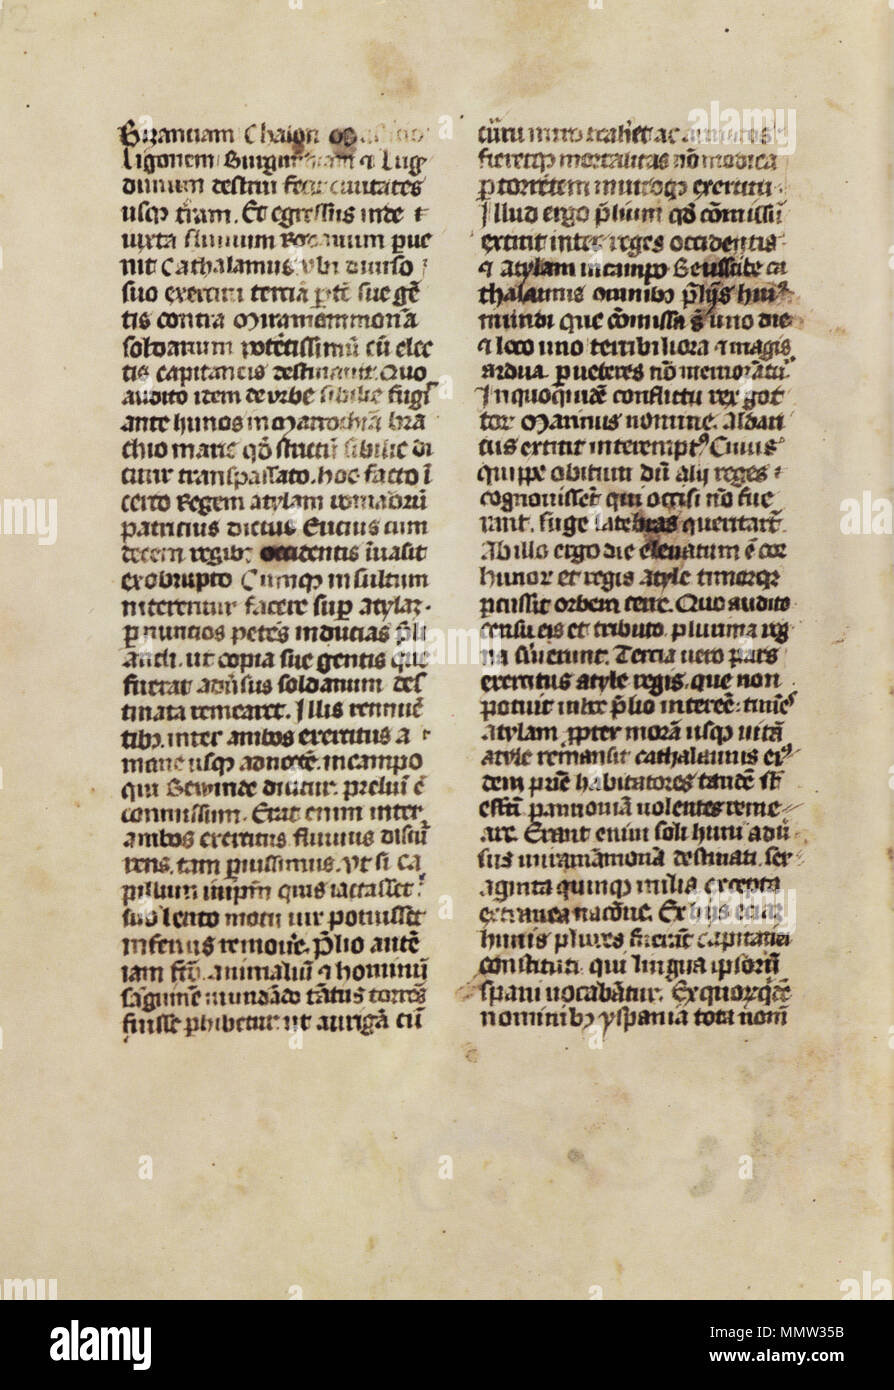 Bizanciam Chalon
Ligonem Burgundiam ⁊ Lug
dunum destrui fecit civitates
usqꝫ tram. Et egressus inde ⁊
iuxta fluvium Rodanum pvē
nit Cathalamus, vbi diviso
suo exercitu terciā ꝑtē sue gē
tis contra Miramammonā
soldanum potētissimū cū elec
tis capitaneis destinavit. Quo
audito idem de urbe sibilie fugēs
ante hunos in Marrochiā bra
chio maris qd̄ strictū sibilie di
citur transpassato. hoc facto ī
certo Regem atylam romanorū
patricius dictus Eucius cum
decem regibꝫ occidentis īvasit
ex obrupto Cumqꝫ insultum
niterentur facere sup atylaꝫ.
ꝑ nuncios petēs inducias p̄li
andi. ut copia sue gentis que
fuerat adūsus soldanum des
tinata remearet. Illis rennuē
tibꝫ. inter ambos exercitus a
mane usqꝫ ad noctē. in campo
qui Bewinde dicitur. preliū ē
commissum. Erat enim inter
ambos exercitus fluvius discū
rens, tam pvissimus. vt si ca
pillum in ip̄m quis iactasset.
sub lento motu vix potuisset
inferius removē. P̄lio autē
iam fcō. animaliū ⁊ hominū
sāguinē inundādo tātus torrēs
fuisse phibetur. ut aurigā cū
curru mito traheret ac armatos
fieretqꝫ mortalitas nō modica
ꝑ torrētem in utroqꝫ exercitu.
Illud ergo p̄lium qd̄ cōmissū
extitit inter reges occidentis
⁊ atylam in campo Beuuide ca
thalaunis omnibꝫ p̄lijs huiꝰ
mundi que cōmissa s̄ uno die
⁊ loco uno terribiliora ⁊ magis
ardua. ꝑ veteres nō memorātur.
In quo quidē conflictu rex got
tor Marinus nomine. Aldari
cus extitit interemptꝰ Cuius
quippe obitum dū alij reges
cognovissēt qui occisi nō fue
rant. fuge latebras quesitarūt.
Ab illo ergo die elevatum ē cor
hunor et regis atyle timorqꝫ
ꝑcussit orbem terre. Quo audito
censu eis et tributo. plurima reg
na sūierunt. Tercia vero pars
exercitus atyle regis. que non
potuit in hoc p̄lio interēē: timēs
atylam. ꝓpter morā usqꝫ vitā
atyle remansit cathalaunis eiꝰ
dem pvīe habitatores tandē sūt
effcī. pannoniā volentes reme
are. Erant enim soli huni adū
sus miramāmonā destinati. sex
aginta quinqꝫ milia excepta
extranea nacōne. Ex hijs etiam
hunis plures fuerūt capitanei
constituti qui lingua ipsorū
spani vocabātur. Ex quorqdē
nominibꝫ yspania tota nomī
alamy
alamy
Image ID: MMW35B
www.alamy.com